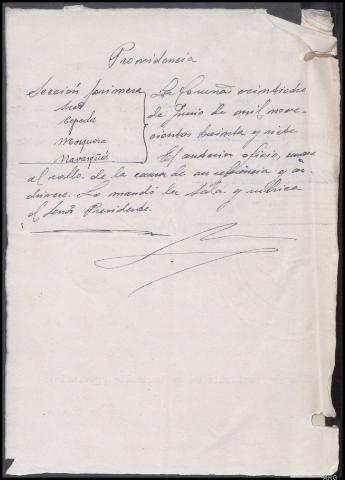 Providencia
Sección primera
Scas
Cepeda
Mosquera
Navarqüés
La Coruña veintiocho
de Junio de mil nove-
cientos treinta y siete
El anterior oficio, unase
al rollo de la causa de su referencia y ar-
chivese. Lo mandó la Sala y rubrica
el Señor Presidente.